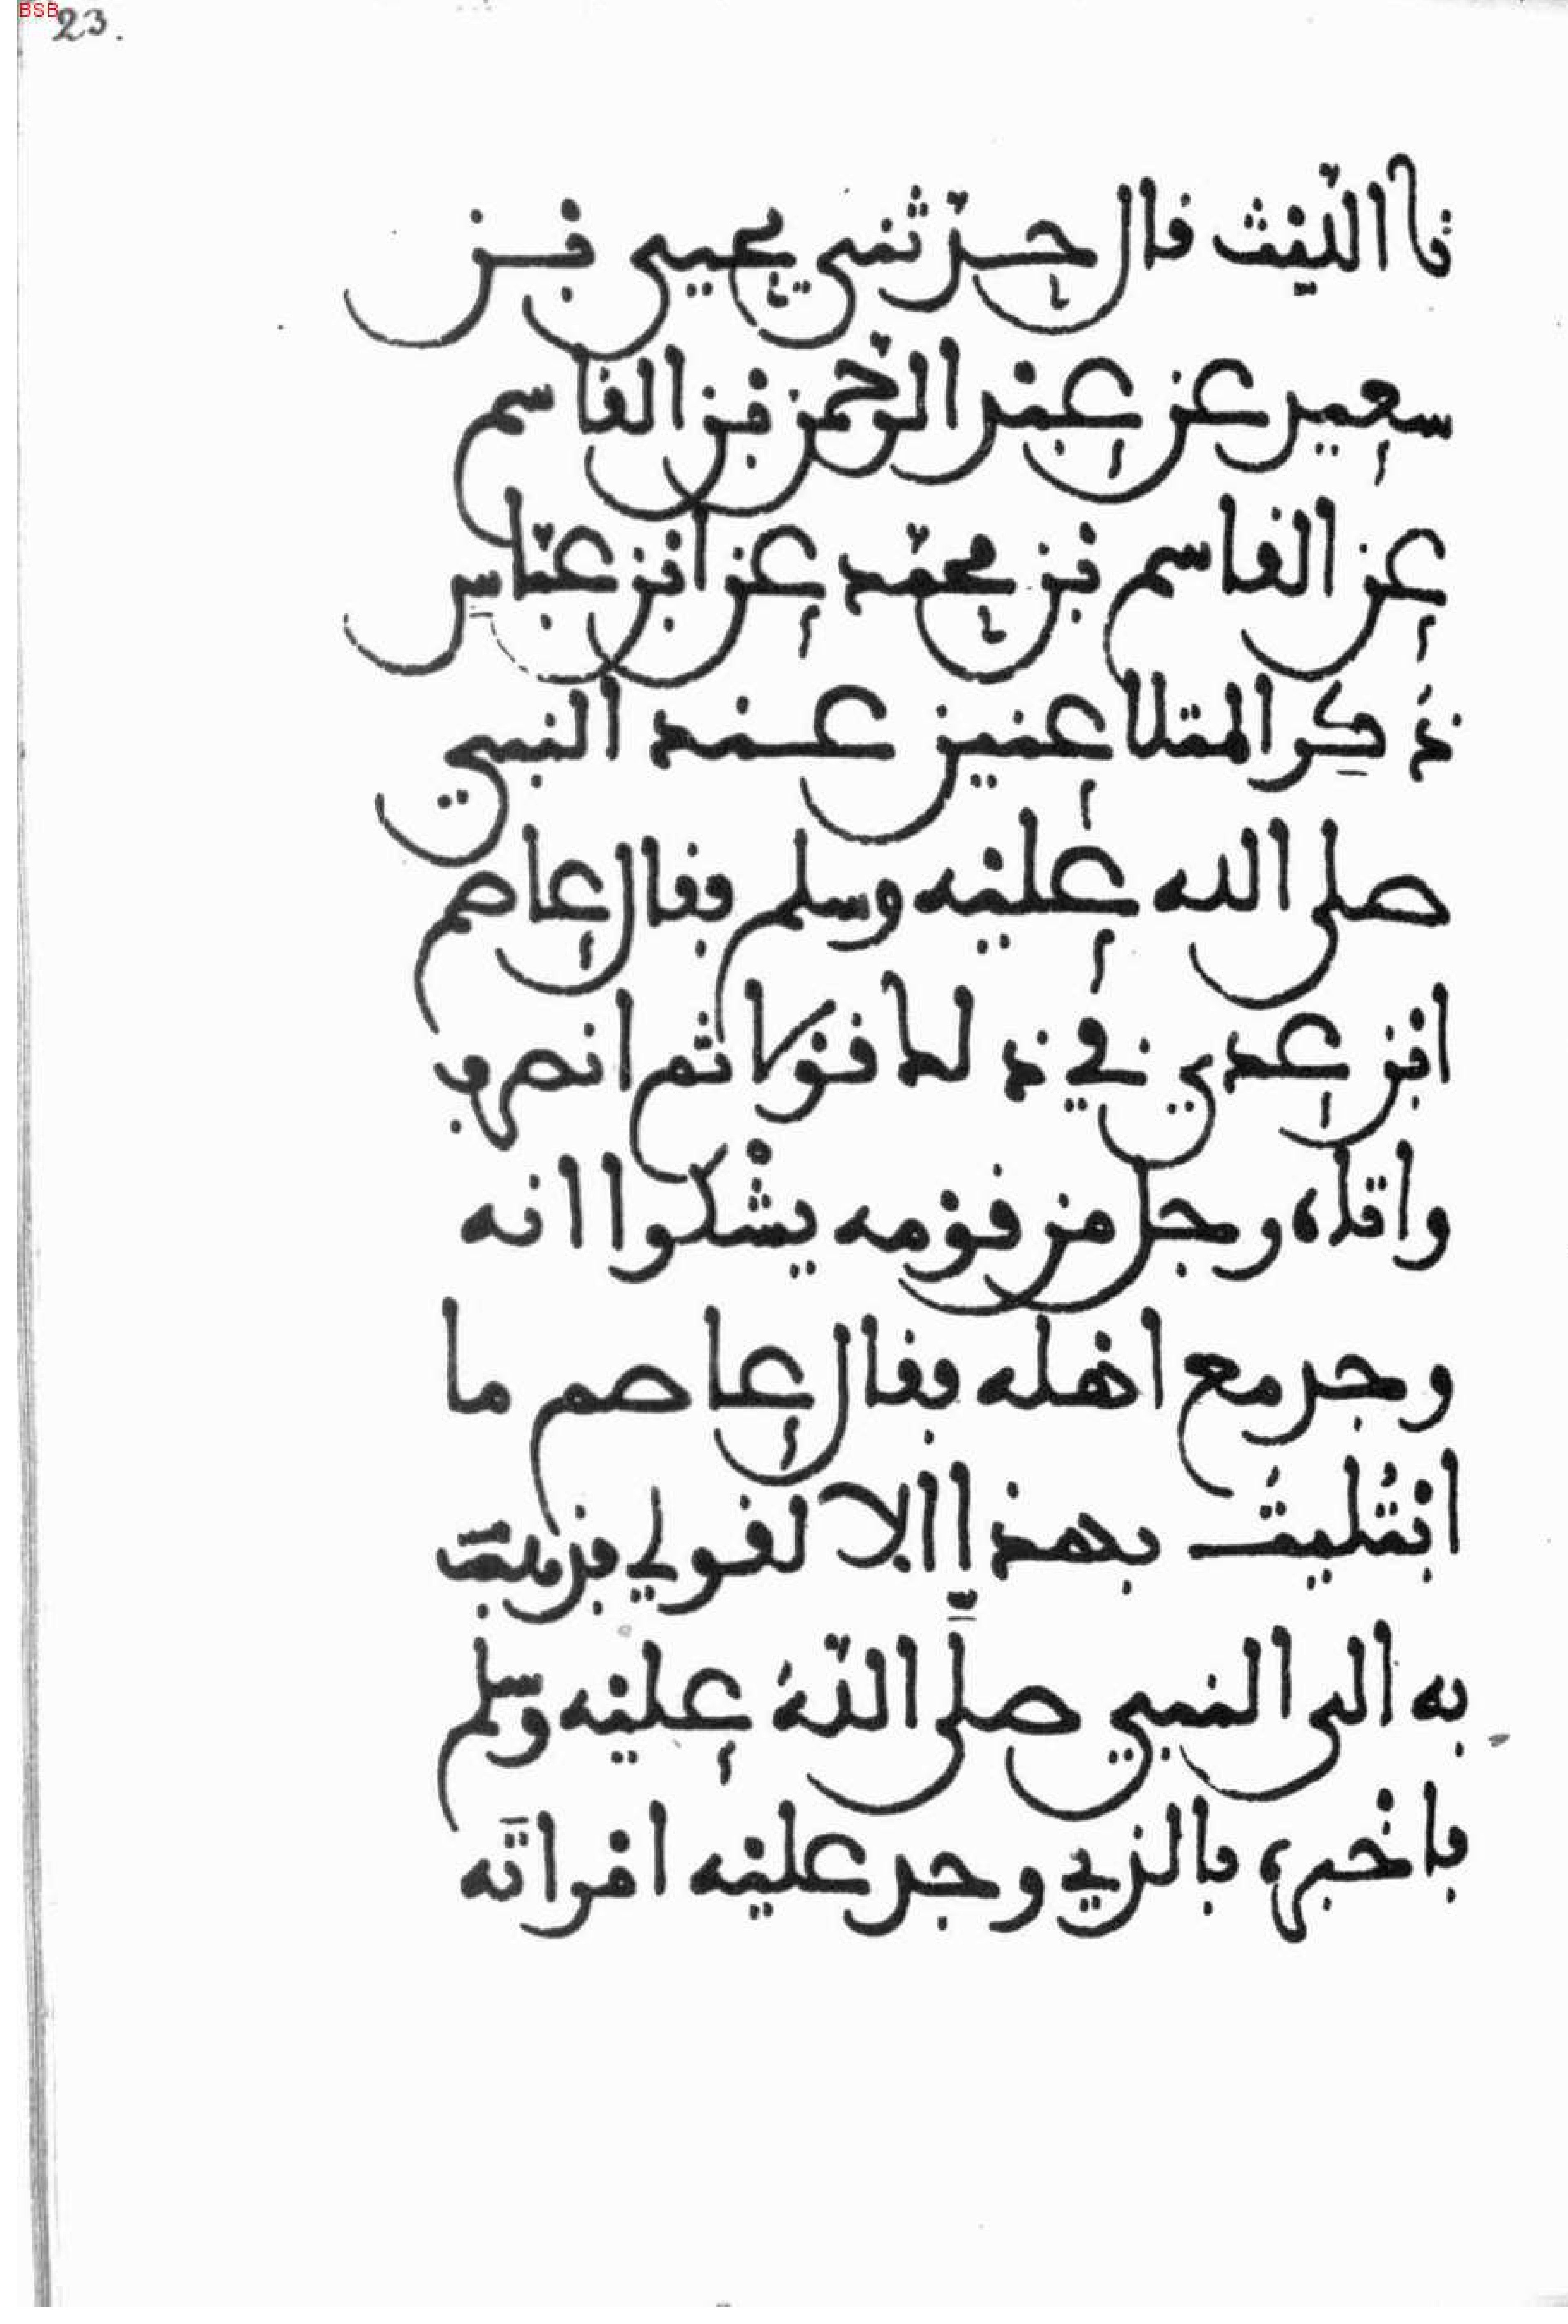 BSB
23.
ثنا الليْث قال حدّثني يحيى بْن
سعيد عن عبْد الرّحمن بْن القاسم
عن القاسم بْن محمّد عن ابْن عبّاسٍ
ذُكِر المتلاعنين عند النبي
صلى الله عليْه وسلم فقال عاصم
ابْن عدي في ذلك قوْلا ثم انصرف
واتاه رجل من قوْمه يشْكوا انه
وجد مع اهْله فقال عاصم ما
ابْتُليتُ بهذا الا لقولي فذهبت
به الى النبي صلَّى اللّهُ عليْه وسلم
فاخْبره بالذي وجد عليْه امْراتَه